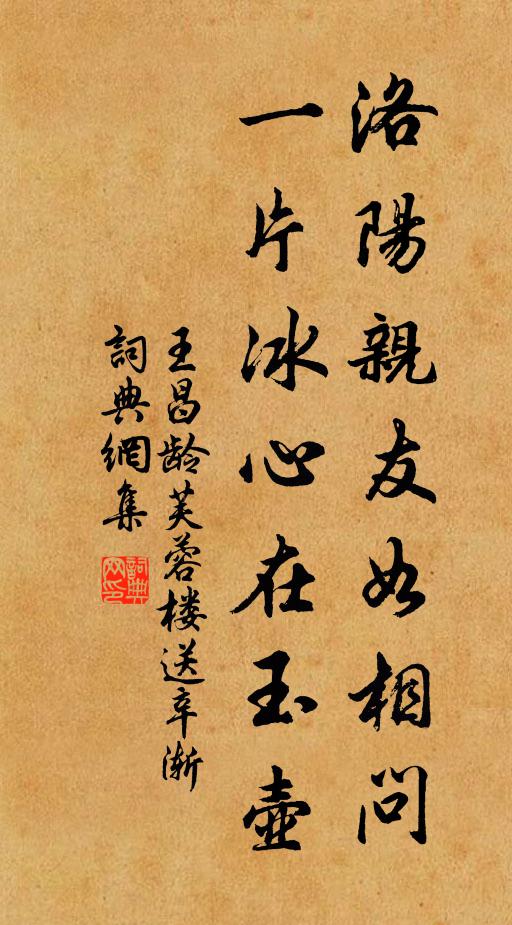 洛陽親友如相問
一片冰心在玉壺
王昌龄芙蓉楼送辛渐
詞典網集
詞典网印